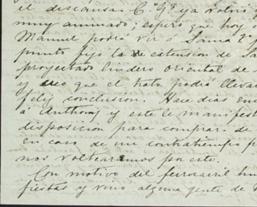 el descansar C. Gª ya volvió
muy animado; espero que hoy
Manuel podrá ver á
punto fijo la extension de
proyectado lindero oriental de
y creo que el trato podrá llevar
feliz conclusion. Hace dias
á Anthony y este le manifestó
disposicion para comprar. de
en caso de un contratiempo
nos voltearemos por este.
Con motivo del ferrocarril
fiestas y vino alguna gente de